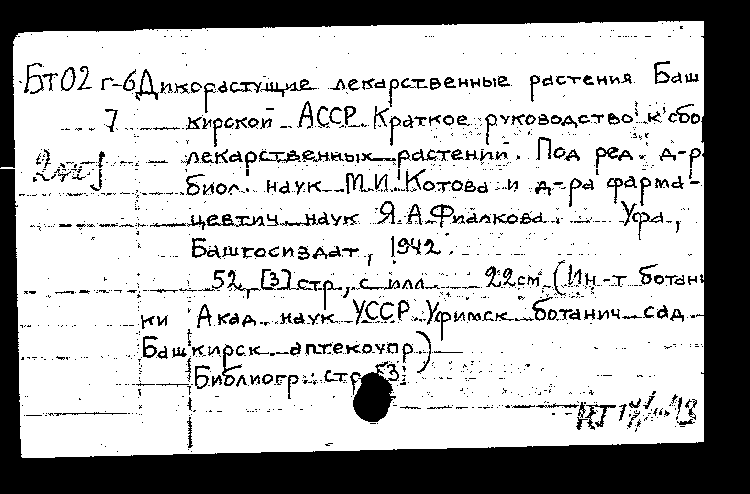 Бт02 г-6 Дикорастущие лекарственные растения Баш
7 кирской АССР. Краткое руководство к сбо
лекарственных растений. Под ред. д-р
биол. наук М.И. Котова и д-ра фарма-
цевтич. наук Я.А. Фиалкова. Уфа,
Башгосиздат, 1942.
52, [3] стр., с илл. 22см. (Ин-т ботани
ки Акад. наук УССР. Уфимск. ботанич. сад.
Башкирск. аптекоупр)
Библиогр.: стр. 53.